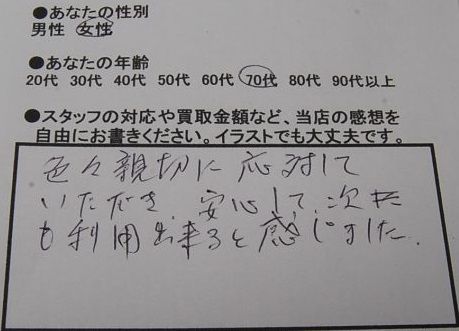 ●あなたの性別
男性 女性
●あなたの年齢
20代 30代 40代 50代 60代 70代 80代 90代以上
●スタッフの対応や買取金額など、当店の感想を
自由にお書きください。イラストでも大丈夫です。
色々親切に応対して
いただき 安心して、次も
利用出来ると感じました。